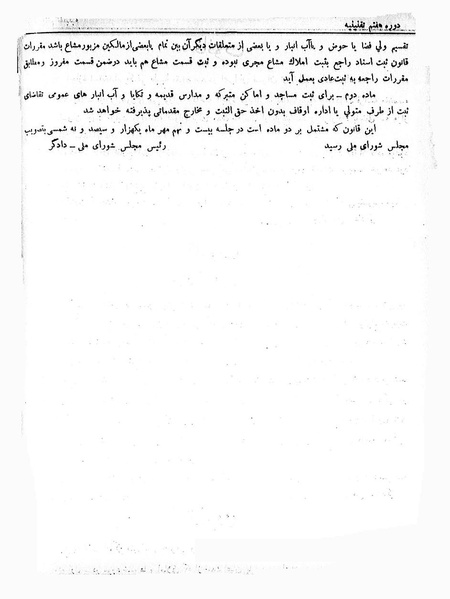 دوره هفتم تقنینیه
تقسیم ولی فضا یا حوض و یاآب انبار و یا بعضی از متعلقات دیگرآن بین تمام یابعضی‌ازمالکین مزبورمشاع باشد مقررات
قانون ثبت اسناد راجع بثبت املاك مشاع مجری نبوده و ثبت قسمت مشاع هم باید درضمن قسمت مفروز ومطابق
مقررات راجعه به ثبت‌عادی بعمل آید
ماده دوم – برای ثبت مساجد و اماکن متبرکه و مدارس قدیمه و تکایا و آب انبار های عمومی تقاضای
ثبت از طرف متولی یا اداره اوقاف بدون اخذ حق الثبت و مخارج مقدماتی پذیرفته خواهد شد
این قانون که مشتمل بر دو ماده است در جلسه بیست و نهم مهر ماه یکهزار و سیصد و نه شمسی‌بتصویب
مجلس شورای ملی رسید رئیس مجلس شورای ملی – دادگر